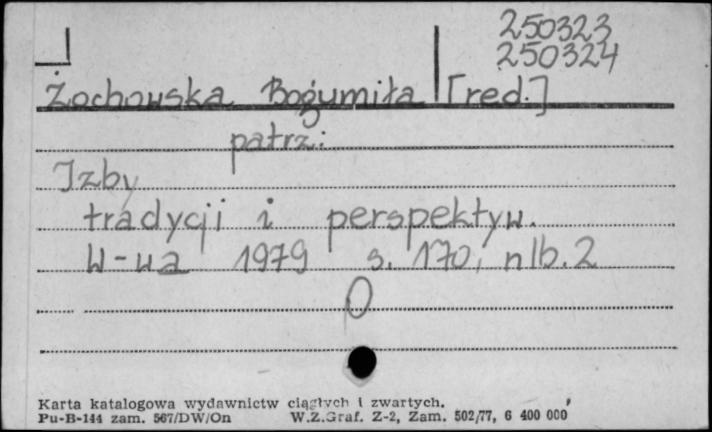 250323
250324
Żochowska Bogumiła [red.]
patrz:
Izby
tradycji i perspektyw.
W-wa 1979 s. 170, nlb. 2
Karta katalogowa wydawnictw ciągłych i zwartych.
Pu-B-144 zam. 567/DW/On W.Z.Graf. Z-2, Zam. 502/77, 6 400 000